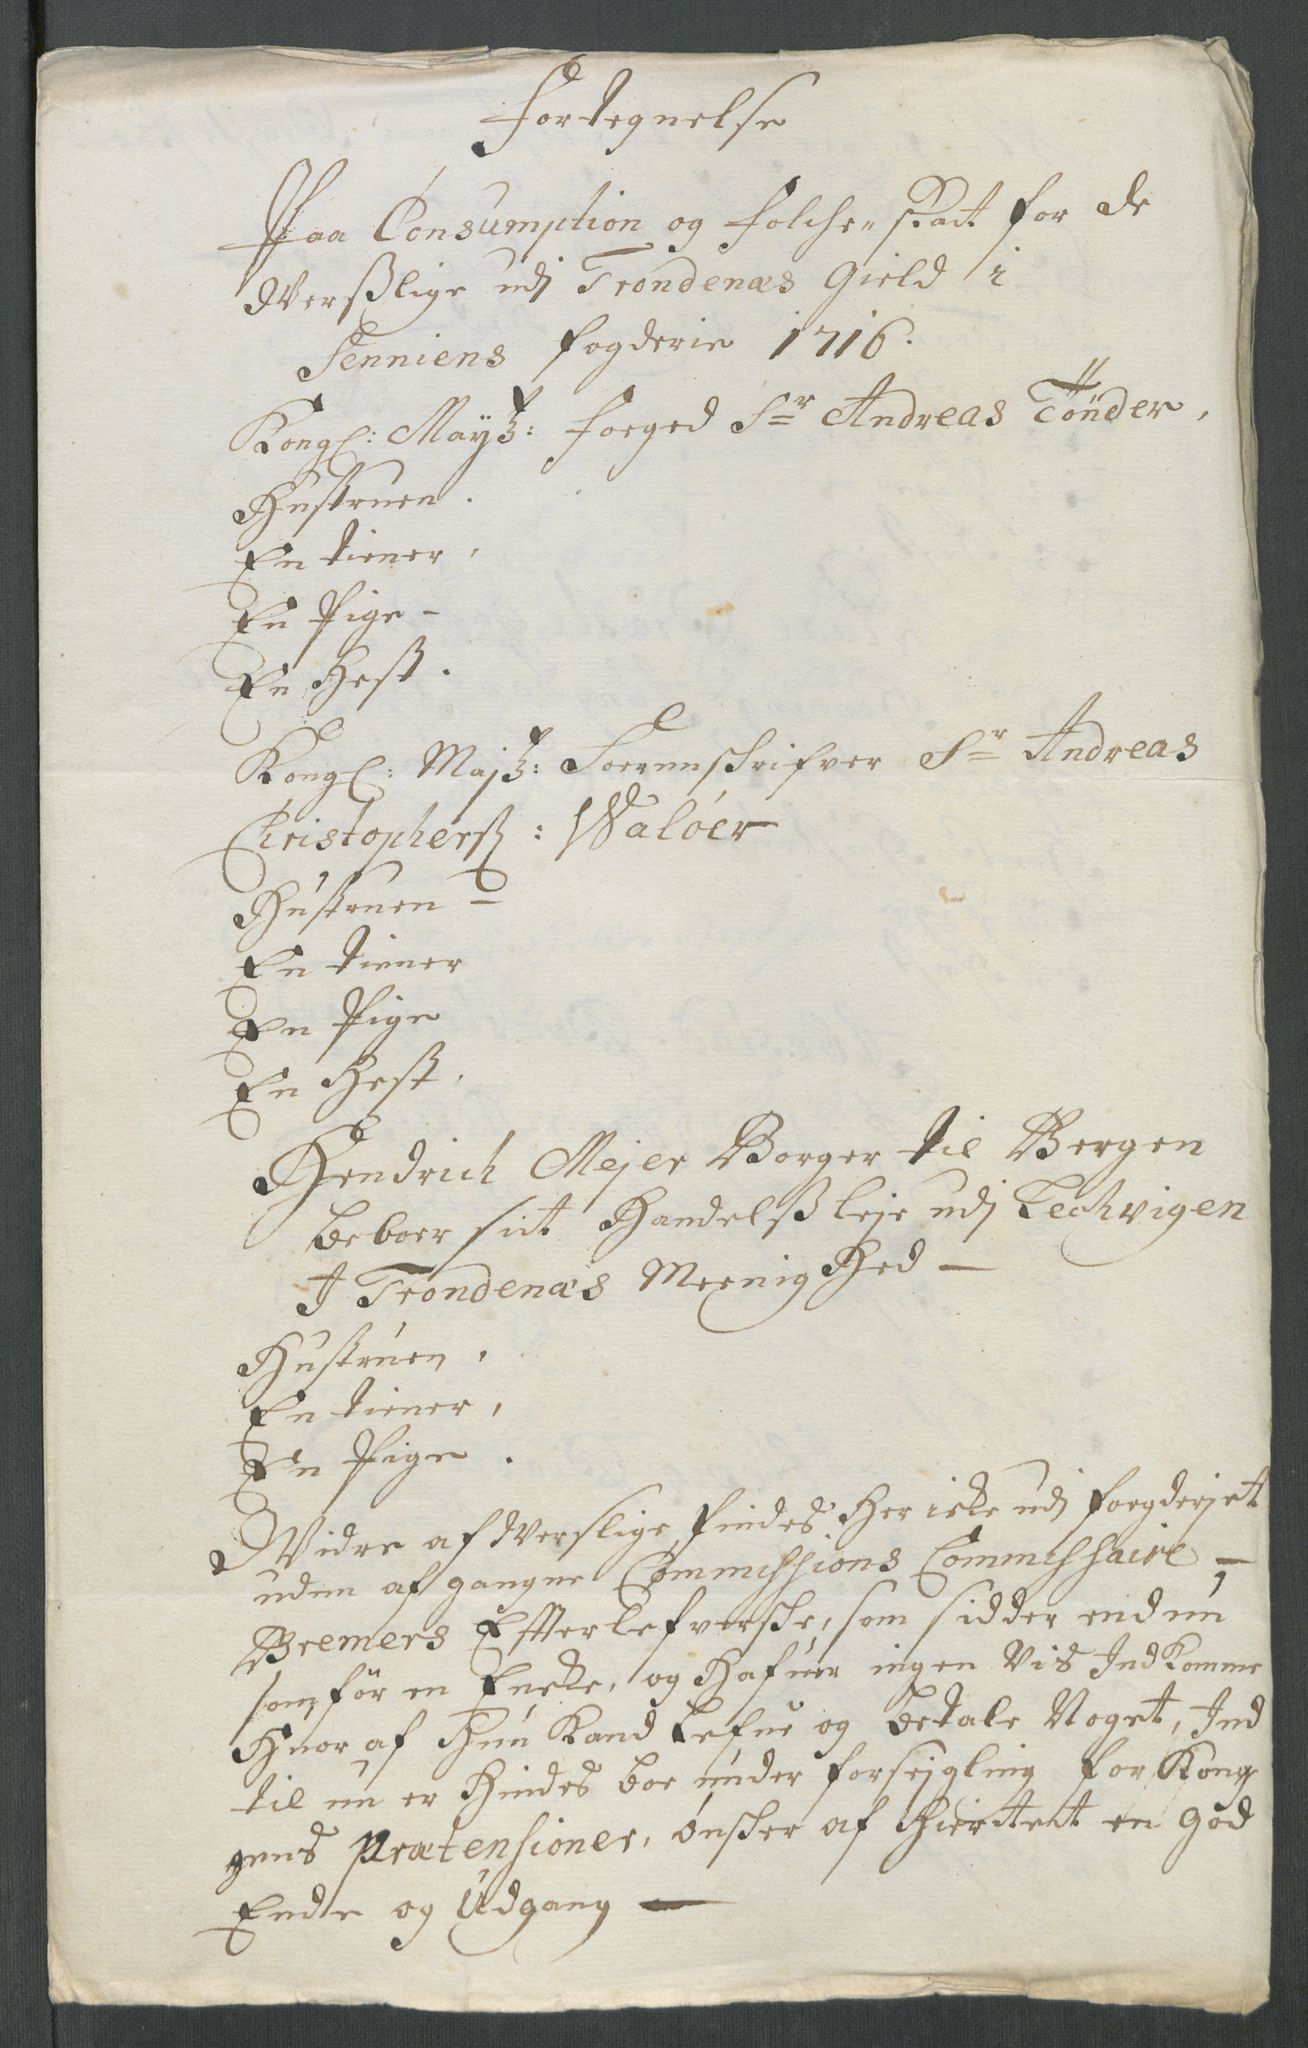 Fortegnelse
Paa Consumption og folche-skat for de
dVerßlige udj Trondenæs Gield i
Senniens fogderie 1716.
Kongl: Mayſt: foeged Sr Andreas Tönder,
Hustruen.
En tiener,
En Pige -
En Hest.
Kongl: Majſt: Soerenschrifver Sr Andreas
Christopherß: Walöer
Hustruen -
En tiener
En Pige
En Hest.
Hendrich Mejer Borger til Bergen
beboer sit Handelß leje udj Lechvigen
J Trondenæs Meenighed -
Hustruen,
En tiener,
En Pige.
Vidre af dVerslige findes her icke udj foegderjet
uden afgangne Commissions Commissaire -
Bremers Efterlefverske, som sidder endnu
som för en Encke, og hafuer ingen Vis Indkomme
Huor af hun kand lefue og betale Noget, Ind
til nu er hindes boe under forsejgling for Kong
gens Prætensioner, önsker af hiertet en god
Ende og Udgang -